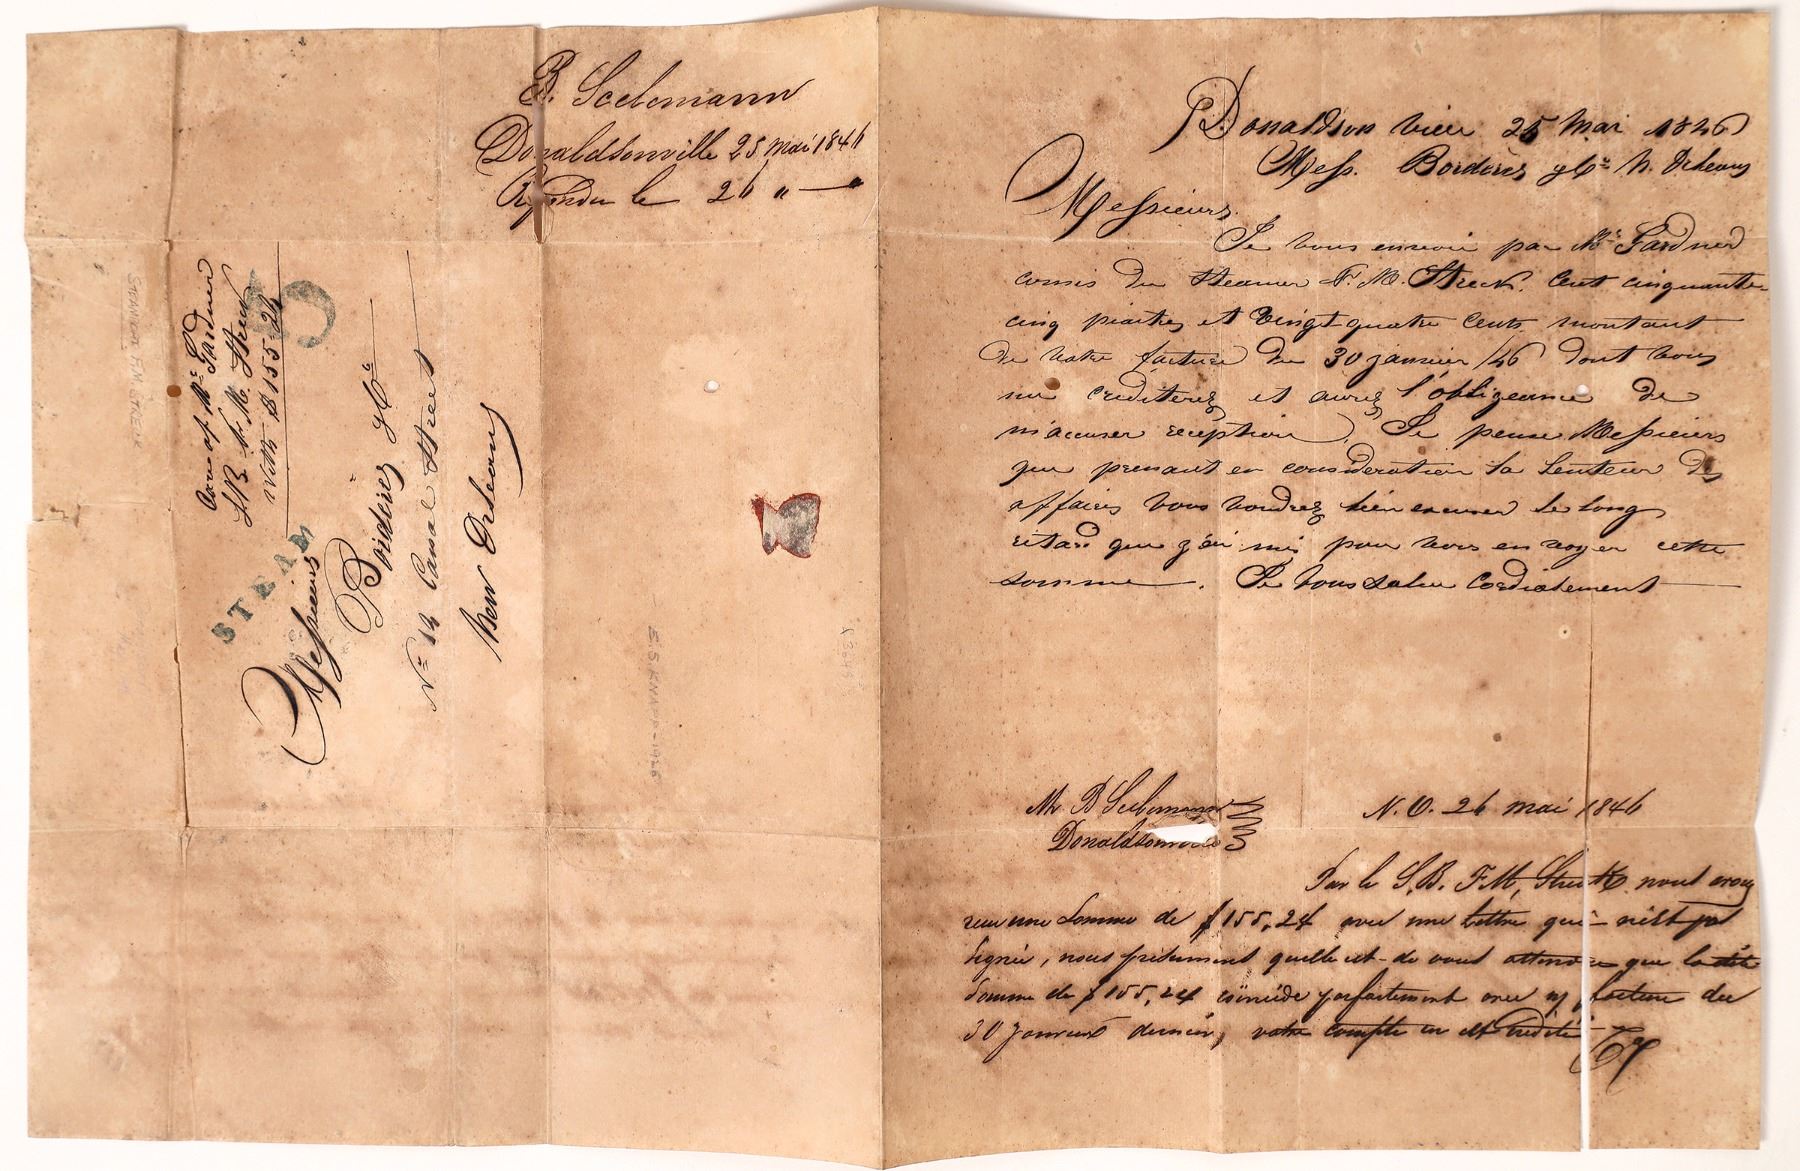 B. Seelemann
Donaldsonville 25 Mai 1846
Répondu le 26 " — "
Care of Mr. Gardner
S.B. F. M. Streck
with $155.24
STEAM
Messieurs
Bordères & Cie
No 14 Canal Street
New Orleans
STEAMER F.M. STRECK
E.S. KNAPP - 1926
Donaldson ville 25 Mai 1846
Mess. Bordères & Cie N. Orleans
Messieurs.
Je vous envoie par Mr. Gardner
comis du Steamer F. M. Streck. Cent cinquante-
cinq piastres et Vingt quatre Cents montant
de votre facture du 30 janvier /46 dont vous
me crediterez et aurez l'obligeance de
m'accuser reception. Je pense Messieurs
que prenant en consideration la lenteur des
affaires vous voudrez bien excuser le long
retard que j'ai mis pour vous envoyer cette
somme. Je vous salue Cordialement
Mr B Seelemann
Donaldsonville
N. O. 26 mai 1846
Par le S.B. F.M. Streck nous avons
recu une Somme de $155,24 avec une lettre qui n'est pas
Signée, nous présumons quelle est de vous attendu que la dite
Somme de $155,24 coïncide parfaitement avec n/ facture du
30 Janvier dernier, votre compte en est Crédité